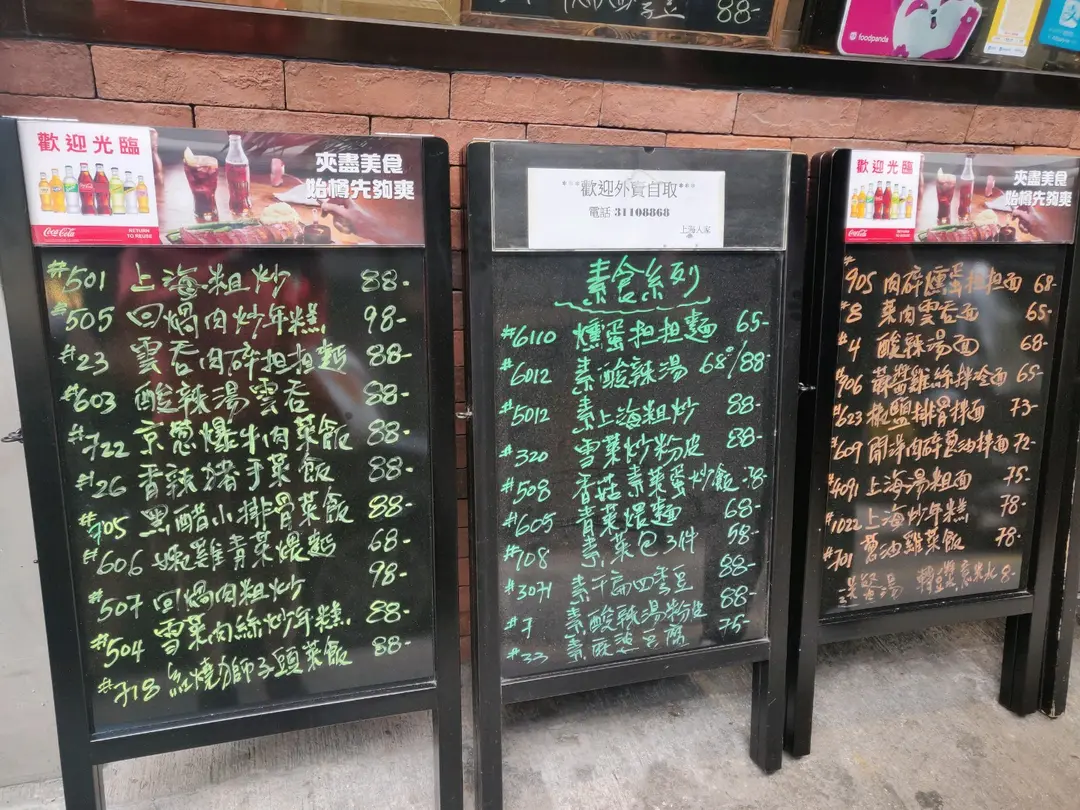 88-
foodpanda
歡迎光臨
Coca-Cola
RETURN TO REUSE
夾盡美食
始樽先夠爽
#501 上海粗炒 88-
#505 回焗肉炒年糕 98-
#23 雲吞肉碎担担麵 88-
#603 酸辣湯雲吞 88-
#722 京葱爆牛肉菜飯 88-
#126 香辣猪手菜飯 88-
#705 黑醋小排骨菜飯 88-
#606 雞青菜煨麵 68-
#507 回焗肉粗炒 98-
#504 雪菜肉絲炒年糕 88-
#718 紅燒獅子頭菜飯 88-
歡迎外賣自取
電話 31108868
上海人家
素食系列
#6110 燻蛋担担麵 65-
#6012 素酸辣湯 68/88-
#5012 素上海粗炒 88-
#320 雪菜炒粉皮 88-
#508 香菇素菜蛋炒飯 78-
#605 青菜煨麵 68-
#108 素菜包3件 58-
#3071 素干扁四季豆 88-
#7 素酸辣湯粉皮 88-
#33 素酸 豆腐 75-
歡迎光臨
Coca-Cola
RETURN TO REUSE
夾盡美食
始樽先夠爽
#905 肉碎燻蛋担担面 68-
#8 菜肉雲吞面 65-
#4 酸辣湯面 68-
#906 雞絲拌冷面 65-
#623 椒盬排骨拌面 73-
#609 開洋肉碎葱油拌面 72-
#4091 上海湯粗面 75-
#1022 上海炒年糕 78-
#701 葱油雞菜飯 78-
湯 8-